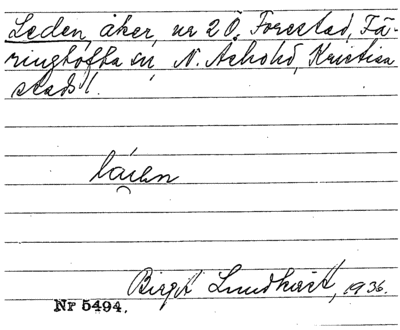 Leden, åker, nr 2 Ö. Forestad, Fä-
ringtofta sn, N. Åsbohd, Kristian
stads l.
Birgit Lundkvist, 1936.
Nr 5494.